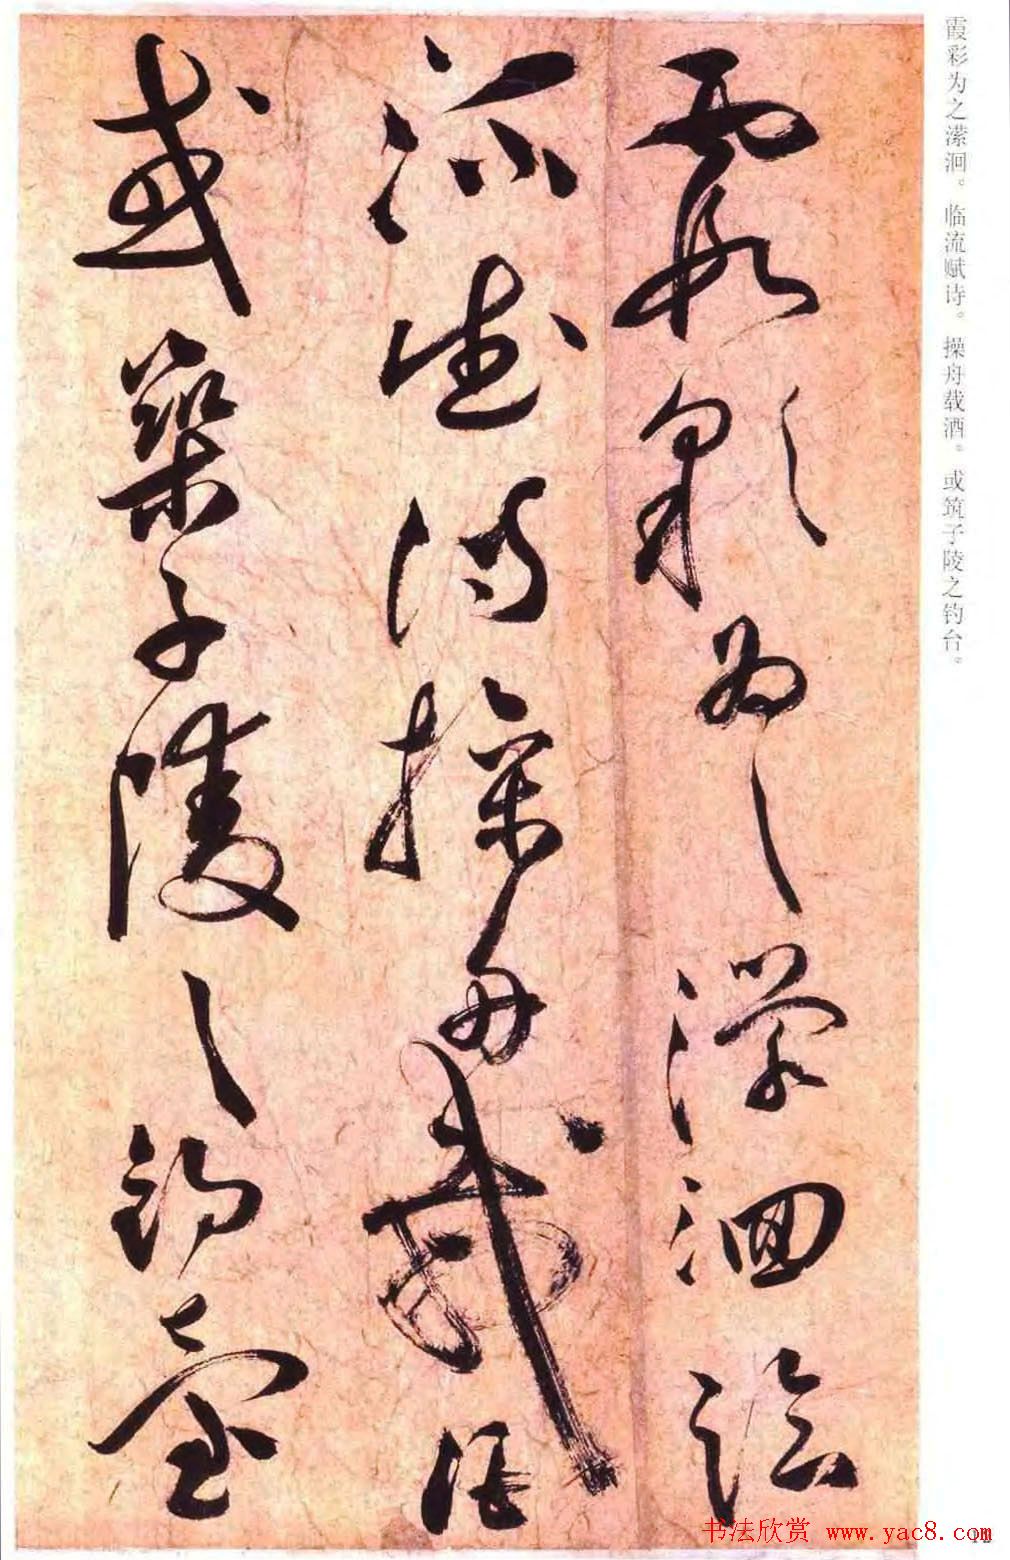 霞彩为之潆洄。临流赋诗。操舟载酒。或筑子陵之钓台。
霞彩为之潆洄临
流赋诗操舟载酒
或筑子陵之钓台
书法欣赏 www.yac8.com